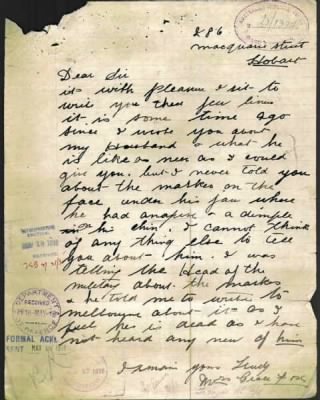 286
Macquarie Street
Hobart
Dear Sir
its with pleasure I sit to
write you these few lines
it is some time ago
since I wrote you about
my Husband & what he
is like as near as I could
give you, but I never told you
about the markes on the
face, under his jaw where
he had & a dimple
in his chin, I cannot think
of any thing else to tell
you about him, I was
telling the Head of the
military about the markes
& he told me to write to
melbourne about it as I
feel he is dead as I have
not heard any news of him
I remain yours Truly
Mrs Grace
DEPARTMENT
RECEIVED
OF DEFENCE
FORMAL ACK
SENT MAY